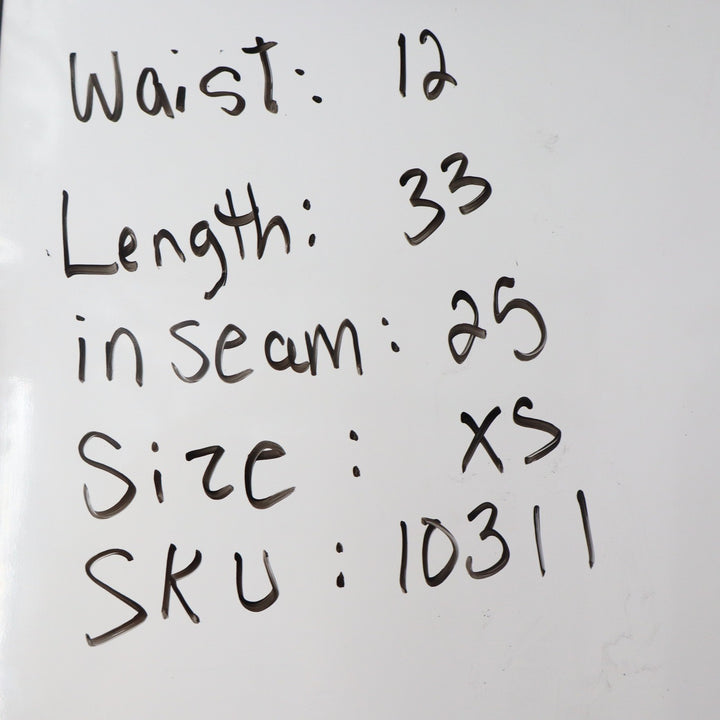 Waist: 12
Length: 33
inseam: 25
Size: XS
SKU: 10311